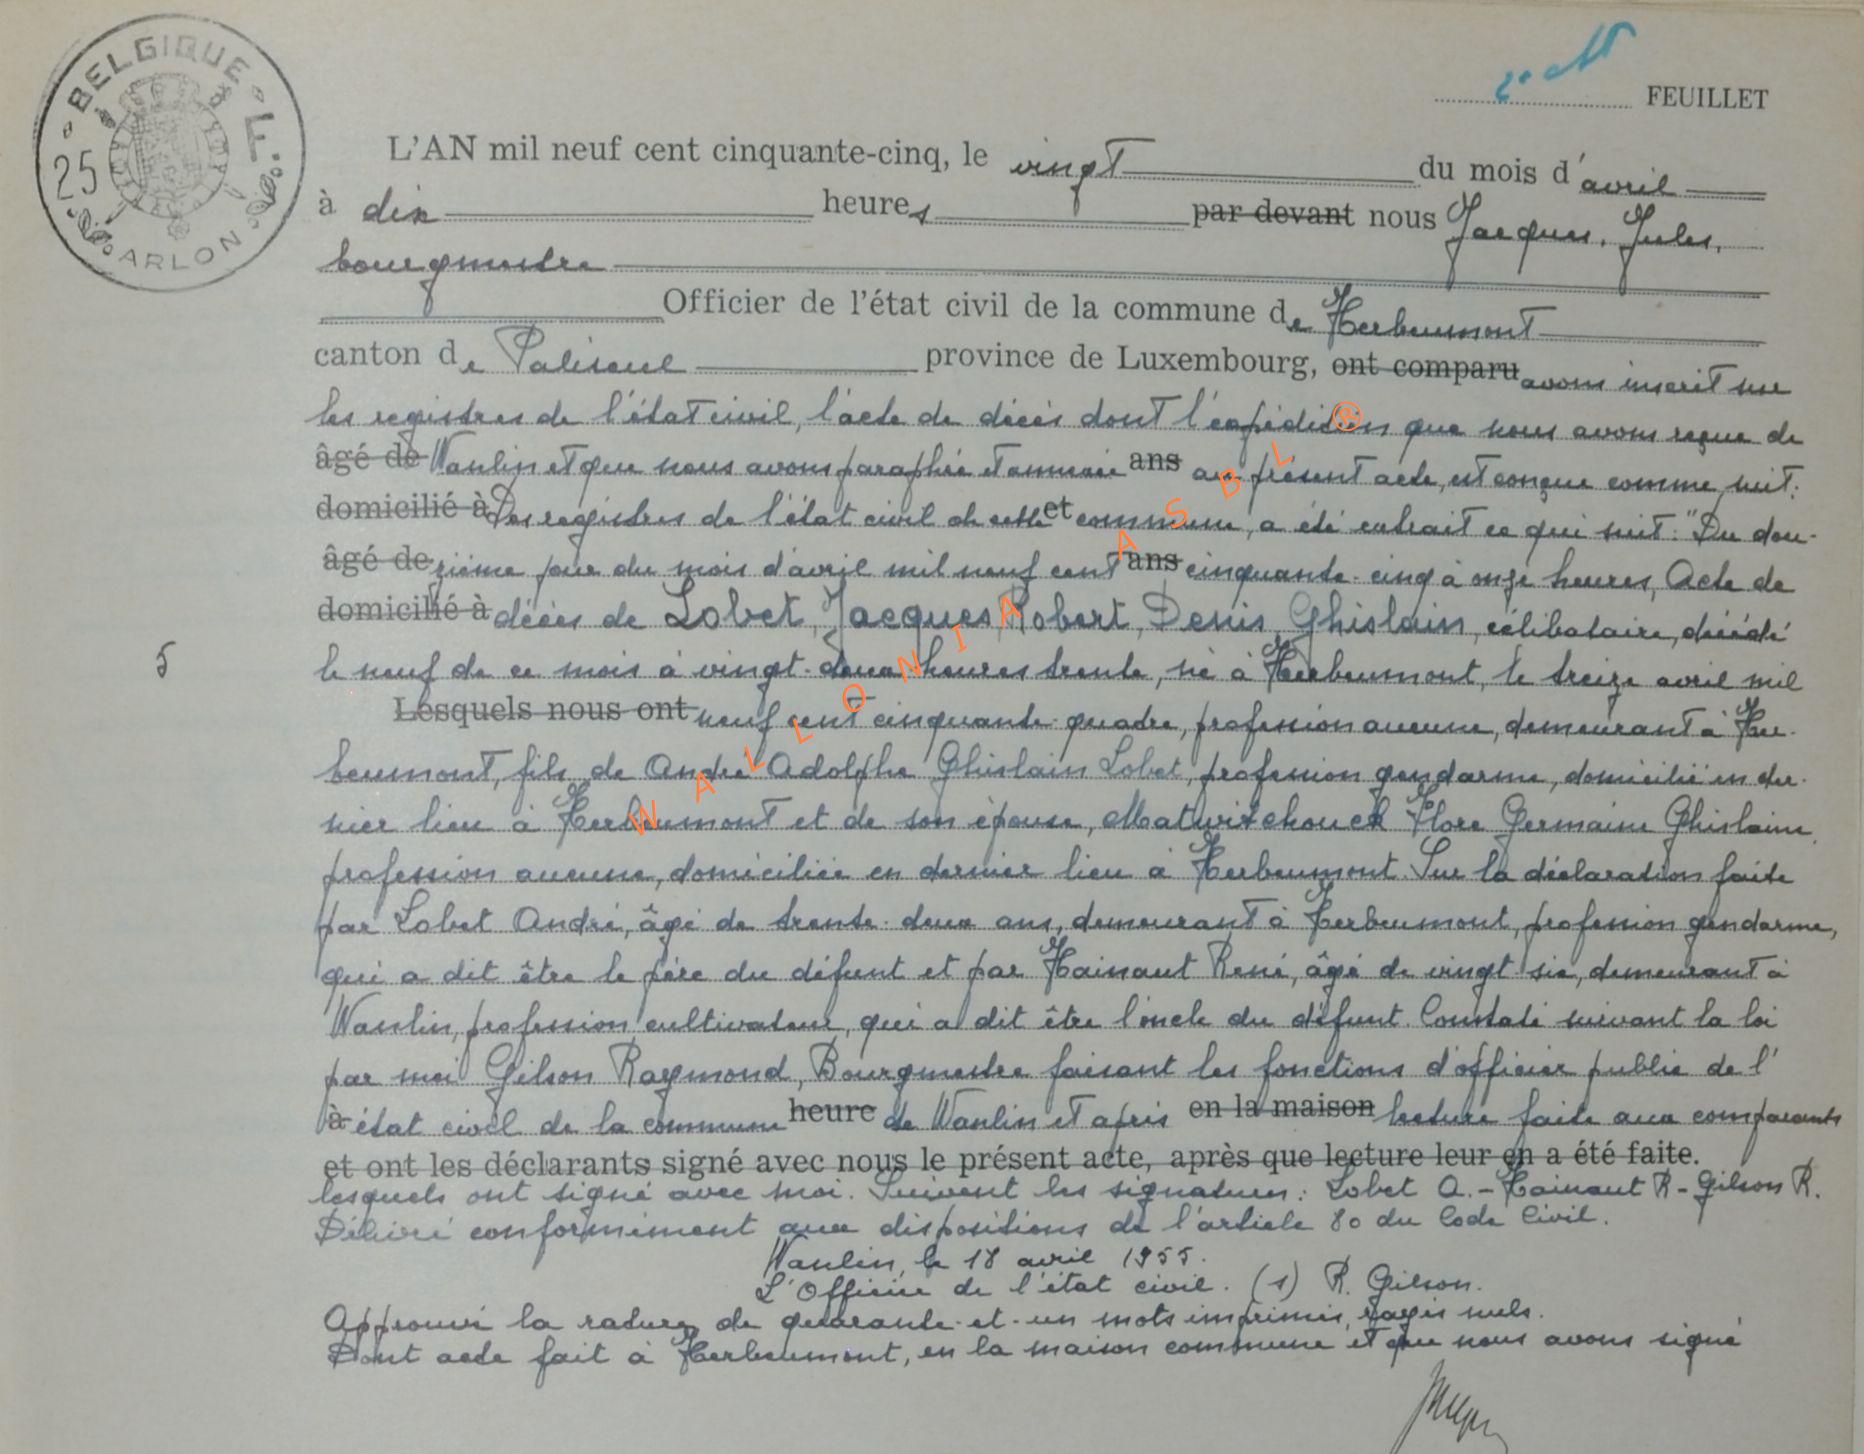 BELGIQUE
25 F
ARLON
2e FEUILLET
L'AN mil neuf cent cinquante-cinq, le vingt du mois d'avril
à dix heures par devant nous Jacques, Jules,
bourgmestre
Officier de l'état civil de la commune de Herbeumont
canton de Paliseul province de Luxembourg, ont comparu avons inscrit sur
les registres de l'état civil, l'acte de décès dont l'expédition que nous avons reçue de
âgé de Wanlin et que nous avons paraphée et annexée ans au présent acte, est conçue comme suit:
domicilié à Des registres de l'état civil de cette et commune, a été extrait ce qui suit: "Du dou-
âgé de zième jour du mois d'avril mil neuf cent ans cinquante-cinq à onze heures, Acte de
domicilié à décès de Lobet, Jacques, Robert, Denis, Ghislain, célibataire, décédé
5
le neuf de ce mois à vingt-deux heures trente, né à Herbeumont, le treize avril mil
Lesquels nous ont neuf cent cinquante-quatre, profession aucune, demeurant à Her-
beumont, fils de André Adolphe Ghislain Lobet, profession gendarme, domicilié en der-
nier lieu à Herbeumont et de son épouse, Matwitchouck Flore Germaine Ghislaine,
profession aucune, domiciliée en dernier lieu à Herbeumont. Sur la déclaration faite
par Lobet André, âgé de trente-deux ans, demeurant à Herbeumont, profession gendarme,
qui a dit être le père du défunt et par Hainaut René, âgé de vingt-six, demeurant à
Wanlin, profession cultivateur, qui a dit être l'oncle du défunt. Constaté suivant la loi
par moi Gilson Raymond, Bourgmestre faisant les fonctions d'officier public de l'
à état civil de la commune heure de Wanlin et après en la maison lecture faite aux comparants
et ont les déclarants signé avec nous le présent acte, après que lecture leur en a été faite.
lesquels ont signé avec moi. Suivent les signatures: Lobet A. - Hainaut R - Gilson R.
Délivré conformément aux dispositions de l'article 80 du Code Civil.
Wanlin, le 18 avril 1955.
L'Officier de l'état civil. (s) R. Gilson.
Approuvé la rature de quarante-et-un mots imprimés, rayés nuls.
Dont acte fait à Herbeumont, en la maison commune et que nous avons signé
WALLONIA ASBL ®